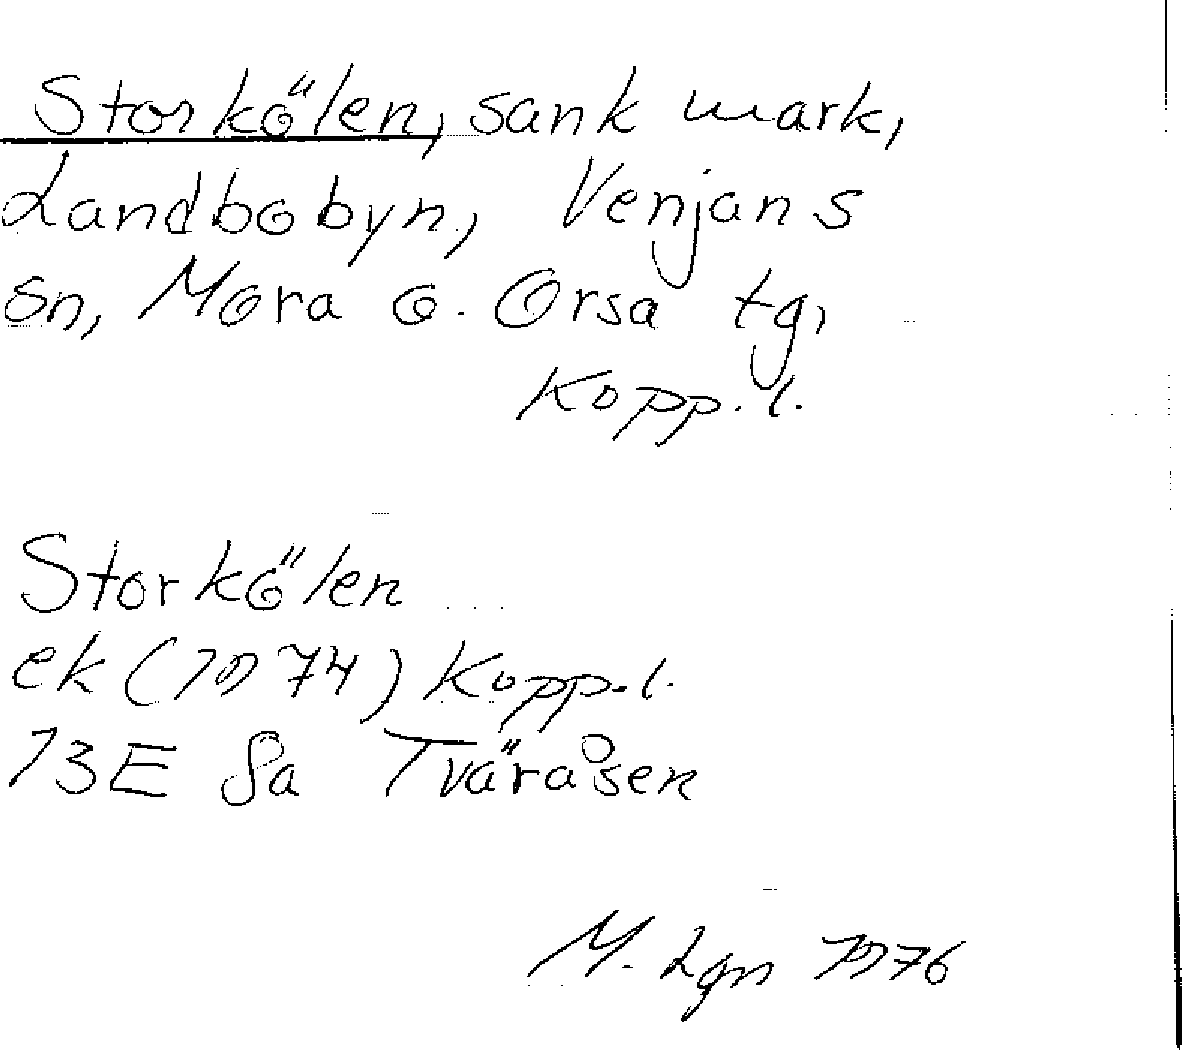 Storkölen, sank mark,
Landbobyn, Venjans
sn, Mora o. Orsa tg,
Kopp. l.
Storkölen
ek (1974) Kopp. l.
13E 8a Tväråsen
M. Lgn 1976